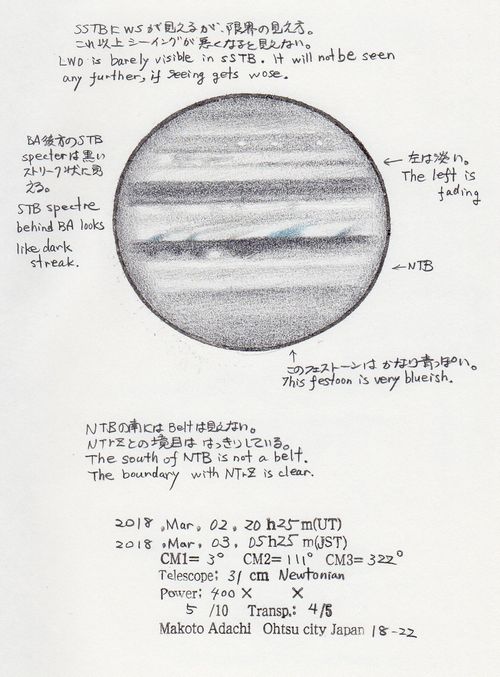 SSTBにWSが見えるが、限界の見え方。
これ以上シーイングが悪くなると見えない。
LWO is barely visible in SSTB. It will not be seen
any further, if seeing gets wose.
BA後方のSTB
specterは黒い
ストリーク状に見
える。
STB spectre
behind BA looks
like dark
streak.
← 左は淡い。
The left is
fading
←NTB
↑
このフェストーンは かなり青っぽい。
This festoon is very blueish.
NTBの南にはBeltは見えない。
NTrZとの境目は はっきりしている。
The south of NTB is not a belt.
The boundary with NTrZ is clear.
2018 .Mar, 02, 20 h25 m(UT)
2018 .Mar, 03, 05h25 m(JST)
CM1= 3° CM2= 111° CM3= 322°
Telescope: 31 cm Newtonian
Power: 400 × ×
5 /10 Transp.: 4/5
Makoto Adachi Ohtsu city Japan 18-22